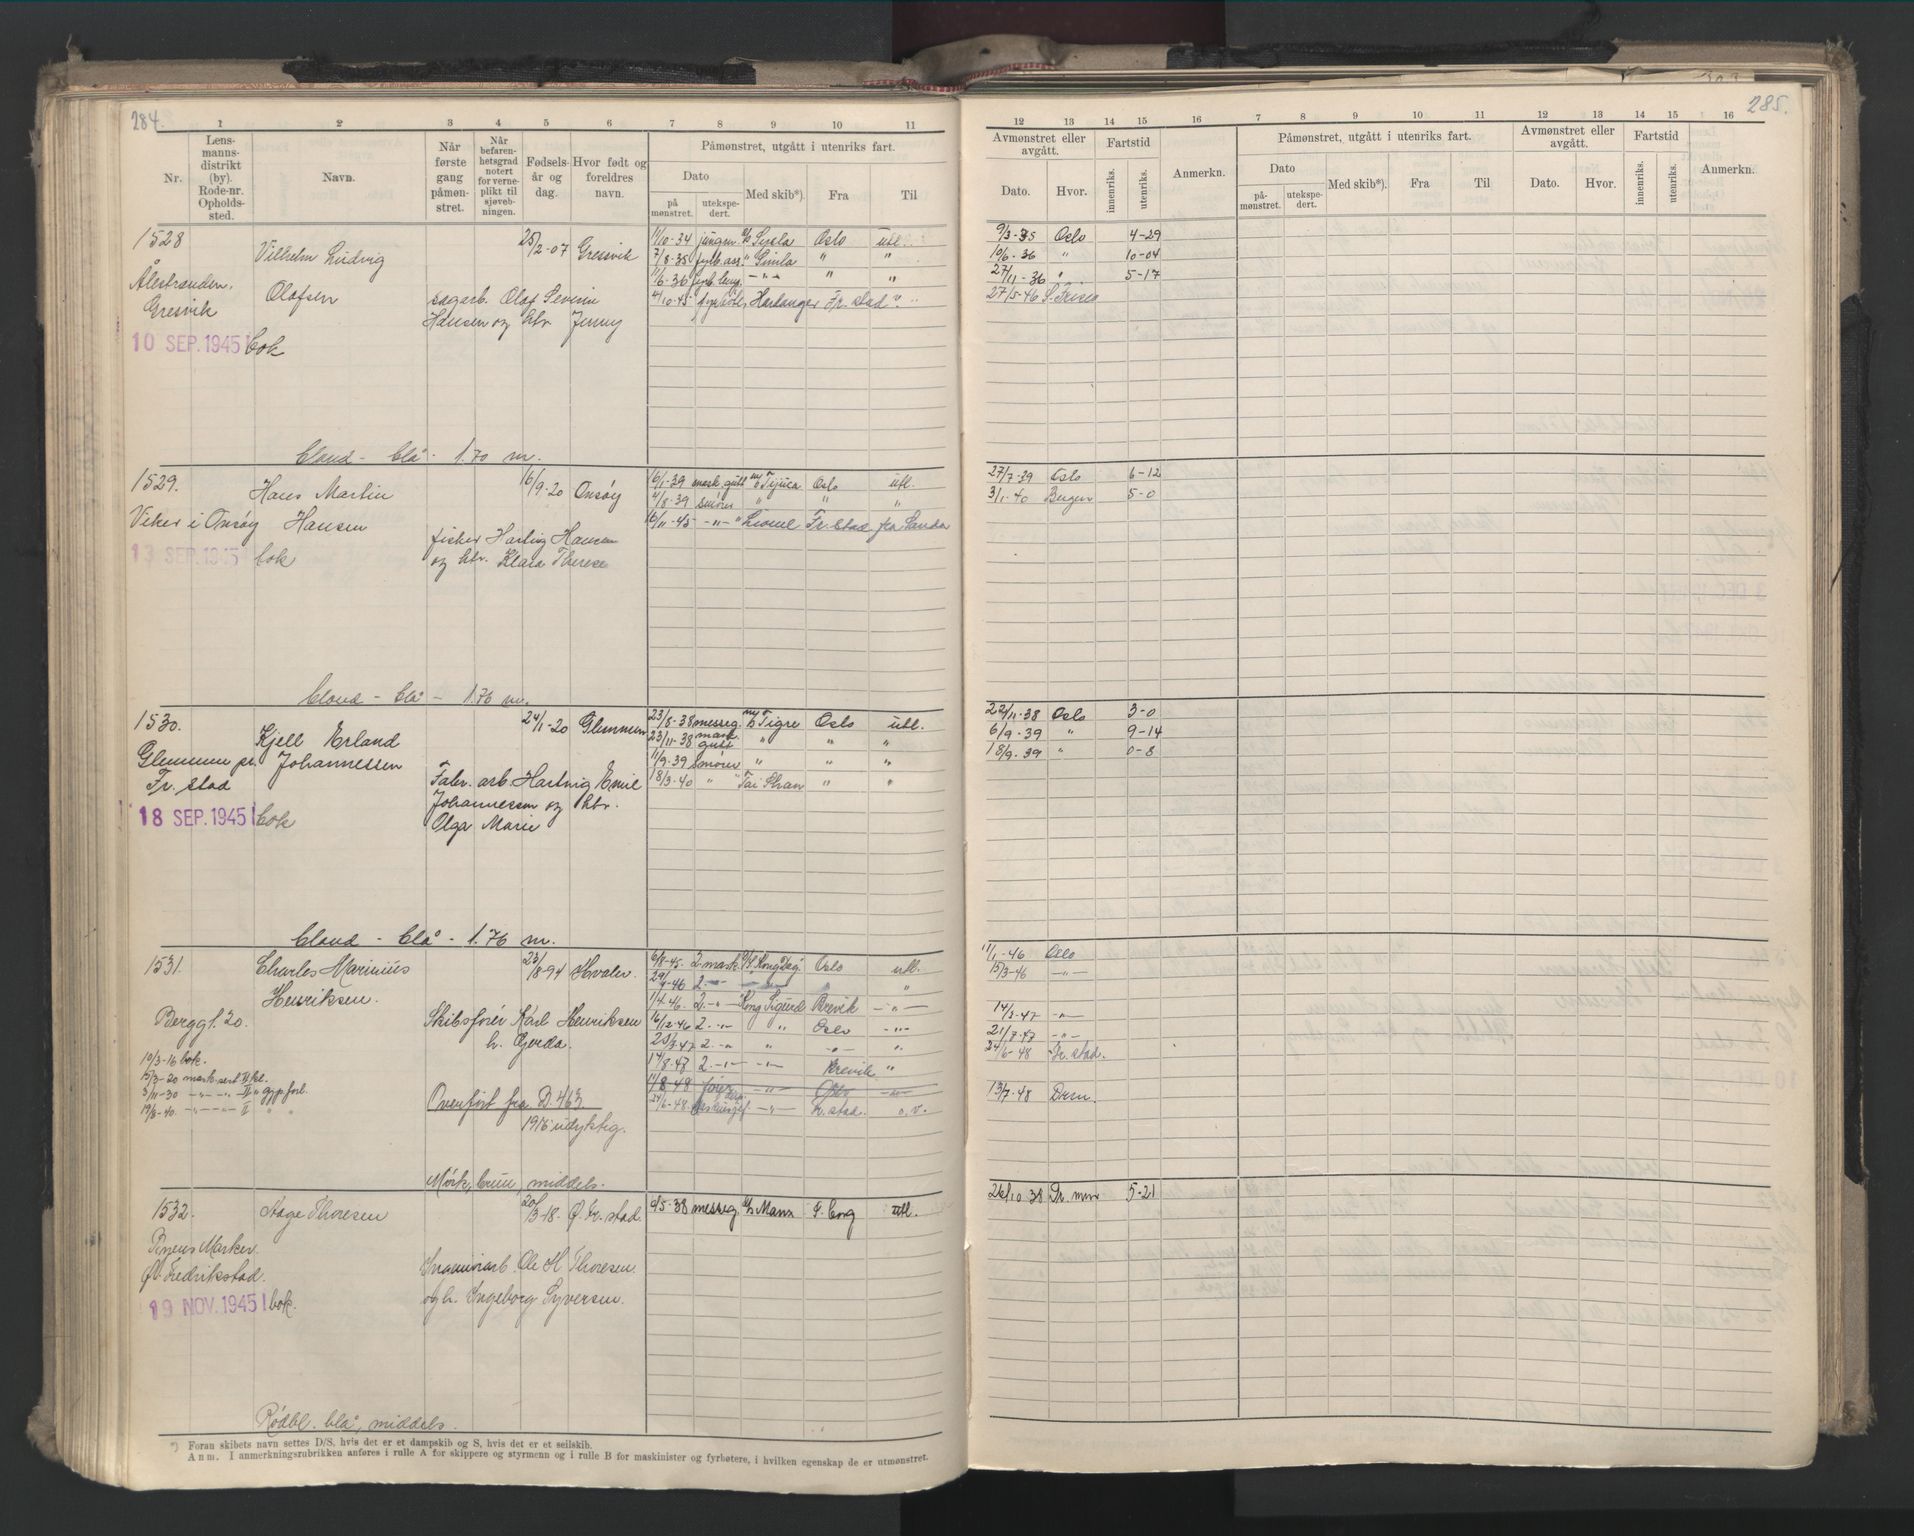 284.
1 2 3 4 5 6 7 8 9 10 11
Nr. Lensmannsdistrikt (by). Rode-nr. Opholdssted. Navn. Når første gang påmønstret. Når befarenhetsgrad notert for verneplikt til sjøvebningen. Fødselsår og dag. Hvor født og foreldres navn.
Påmønstret, utgått i utenriks fart.
Dato Med skib*). Fra Til
påmønstret. utekspedert.
1528 Vilhelm Ludvig 25/2-07 Gressvik 11/10-34 jungm. Sysla Oslo utl.
7/8-35 fyrb.ass. " Simla " "
Ålestranden, 11/6-36 -"- " "
Gresvik Olafsen sagarb. Olaf Severin 4/10-45 Hardanger Fr.stad "
Hansen og htr. Jenny
10 SEP. 1945 bok
blond - blå - 1.70 m.
1529. Hans Martin 16/9-20 Onsøy 16/1-39 mask.gutt m/s Tijuca Oslo utl.
4/8-39 smører " " "
Viker i Onsøy Hansen 16/11-45 -"- " Lionel Fr.stad fra Sanda
fisker Harling Hansen
13 SEP. 1945 bok og htr. Klara Therese
blond - blå - 1.76 m.
1530. Kjell Erland 24/1-20 Glemmen 23/8-38 messeg. m/s Tigre Oslo utl.
23/11-38 mask gutt " " "
Glemmen pr. Johannessen 11/9-39 Smører " " "
Fr.stad Fabr. arb. Hartvig Emil 18/3-40 " " Tai Shan " "
Johannessen og htr.
18 SEP. 1945 bok Olga Marie
blond - blå - 1.76 m.
1531. Charles Marinius 23/8-94 Hvaler. 6/8-45. 2. mask. Kong Dag Oslo utl.
Henriksen. 29/1-46 2 -"- "
1/4 46. 2. -"- Kong Sigurd Brevik -"-
Bergg t. 20. Skibsfører Karl Henriksen 16/12-46 2 -"- " Oslo -"-
h. Gerda. 23/3-47 2. -"- " -"- "
10/3-16 bok. 14/8-47 2. -"- -"- Brevik "
15/3-20 mask.sert. II kl. 11/8-48 -"- Oslo -"-
3/11-30 -"- -"- II " gjp. forl. Overført fra D. 463. 24/6-48. -"- Fr.stad. o.v.
19/8-40. -"- -"- II " " 1916 udyktig.
Mørk, brun, middels.
1532. Aage Thoresen 20/3-18. Ø. Fr.stad. 9/5-38 messeg. Manx S.borg utl.
Pneus Marker.
Ø. Fredrikstad. Ole H. Thoresen.
19 NOV. 1945 bok. og h. Ingeborg Syversen.
Rødbl. blå, middels.
*) Foran skibets navn settes D/S, hvis det er et dampskib og S, hvis det er et seilskib.
Anm. I anmerkningsrubrikken anføres i rulle A for skippere og styrmenn og i rulle B for maskinister og fyrbøtere, i hvilken egenskap de er utmønstret.
285.
12 13 14 15 16 7 8 9 10 11 12 13 14 15 16
Avmønstret eller avgått. Fartstid Anmerkn. Påmønstret, utgått i utenriks fart. Avmønstret eller avgått. Fartstid Anmerkn.
Dato. Hvor. innenriks. utenriks. Dato Med skib*). Fra Til Dato. Hvor. innenriks. utenriks.
påmønstret. utekspedert.
9/3-35 Oslo 4-29
10/6-36 " 10-04
27/11-36 " 5-17
27/5-46
27/7-39 Oslo 6-12
3/1-40 Bergen 5-0
22/11-38 Oslo 3-0
6/9-39 " 9-14
18/9-39 " 0-8
11/1-46 Oslo
15/3-46 -"-
14/3-47 -"-
21/7-47 -"-
24/6-48 Fr.stad.
13/7-48 Drm.
26/10 38 5-21